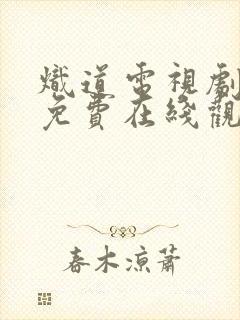 熾道電視劇
免費在綫觀
春木涼蕭